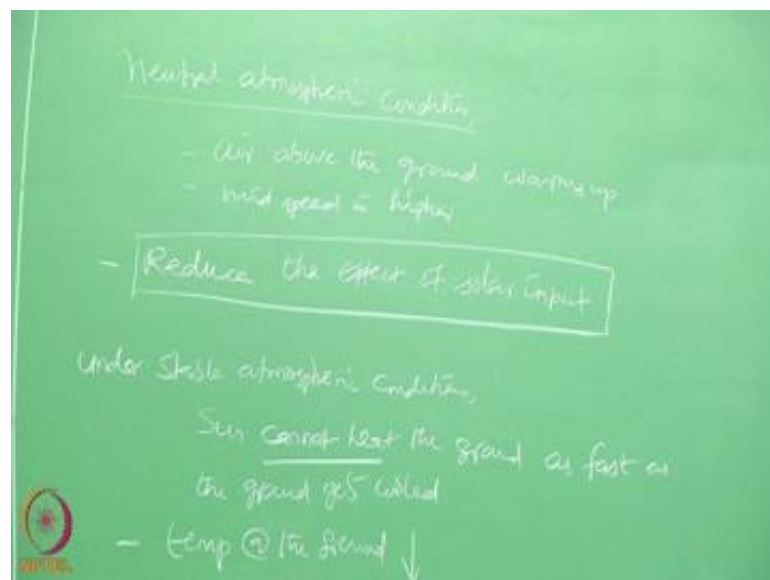 Neutral atmospheric condition
- air above the ground warms up
- wind speed is higher
- Reduce the effect of solar input
under stable atmospheric condition,
Sun cannot heat the ground as fast as
the ground gets cooled
- temp @ the ground ↓
NPTEL